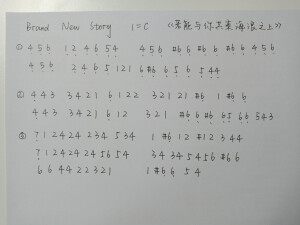 Brand New Story 1=C 《乘能与你共乘海浪之上》
① 4 5 6 1 2 4 6 5 4 4 5 6 #6 6 #6 6 #6 6 4 5 6
4 5 6 2 4 6 5 1 2 1 6 #6 6 5 6 5 4 4
② 4 4 3 3 4 2 1 6 1 2 2 3 2 1 2 1 #6 1 #6 6
4 4 3 3 4 2 1 6 1 2 3 2 1 #6 6 #6 6 5 6 6 5 4 3
③ 7 1 2 4 2 4 2 3 4 5 3 4 1 #6 1 2 #1 2 3 4 4
7 1 2 4 2 4 2 4 5 6 5 4 3 4 3 4 5 4 5 6 #6 6
6 6 4 4 2 2 3 2 1 1 #6 6 5 4